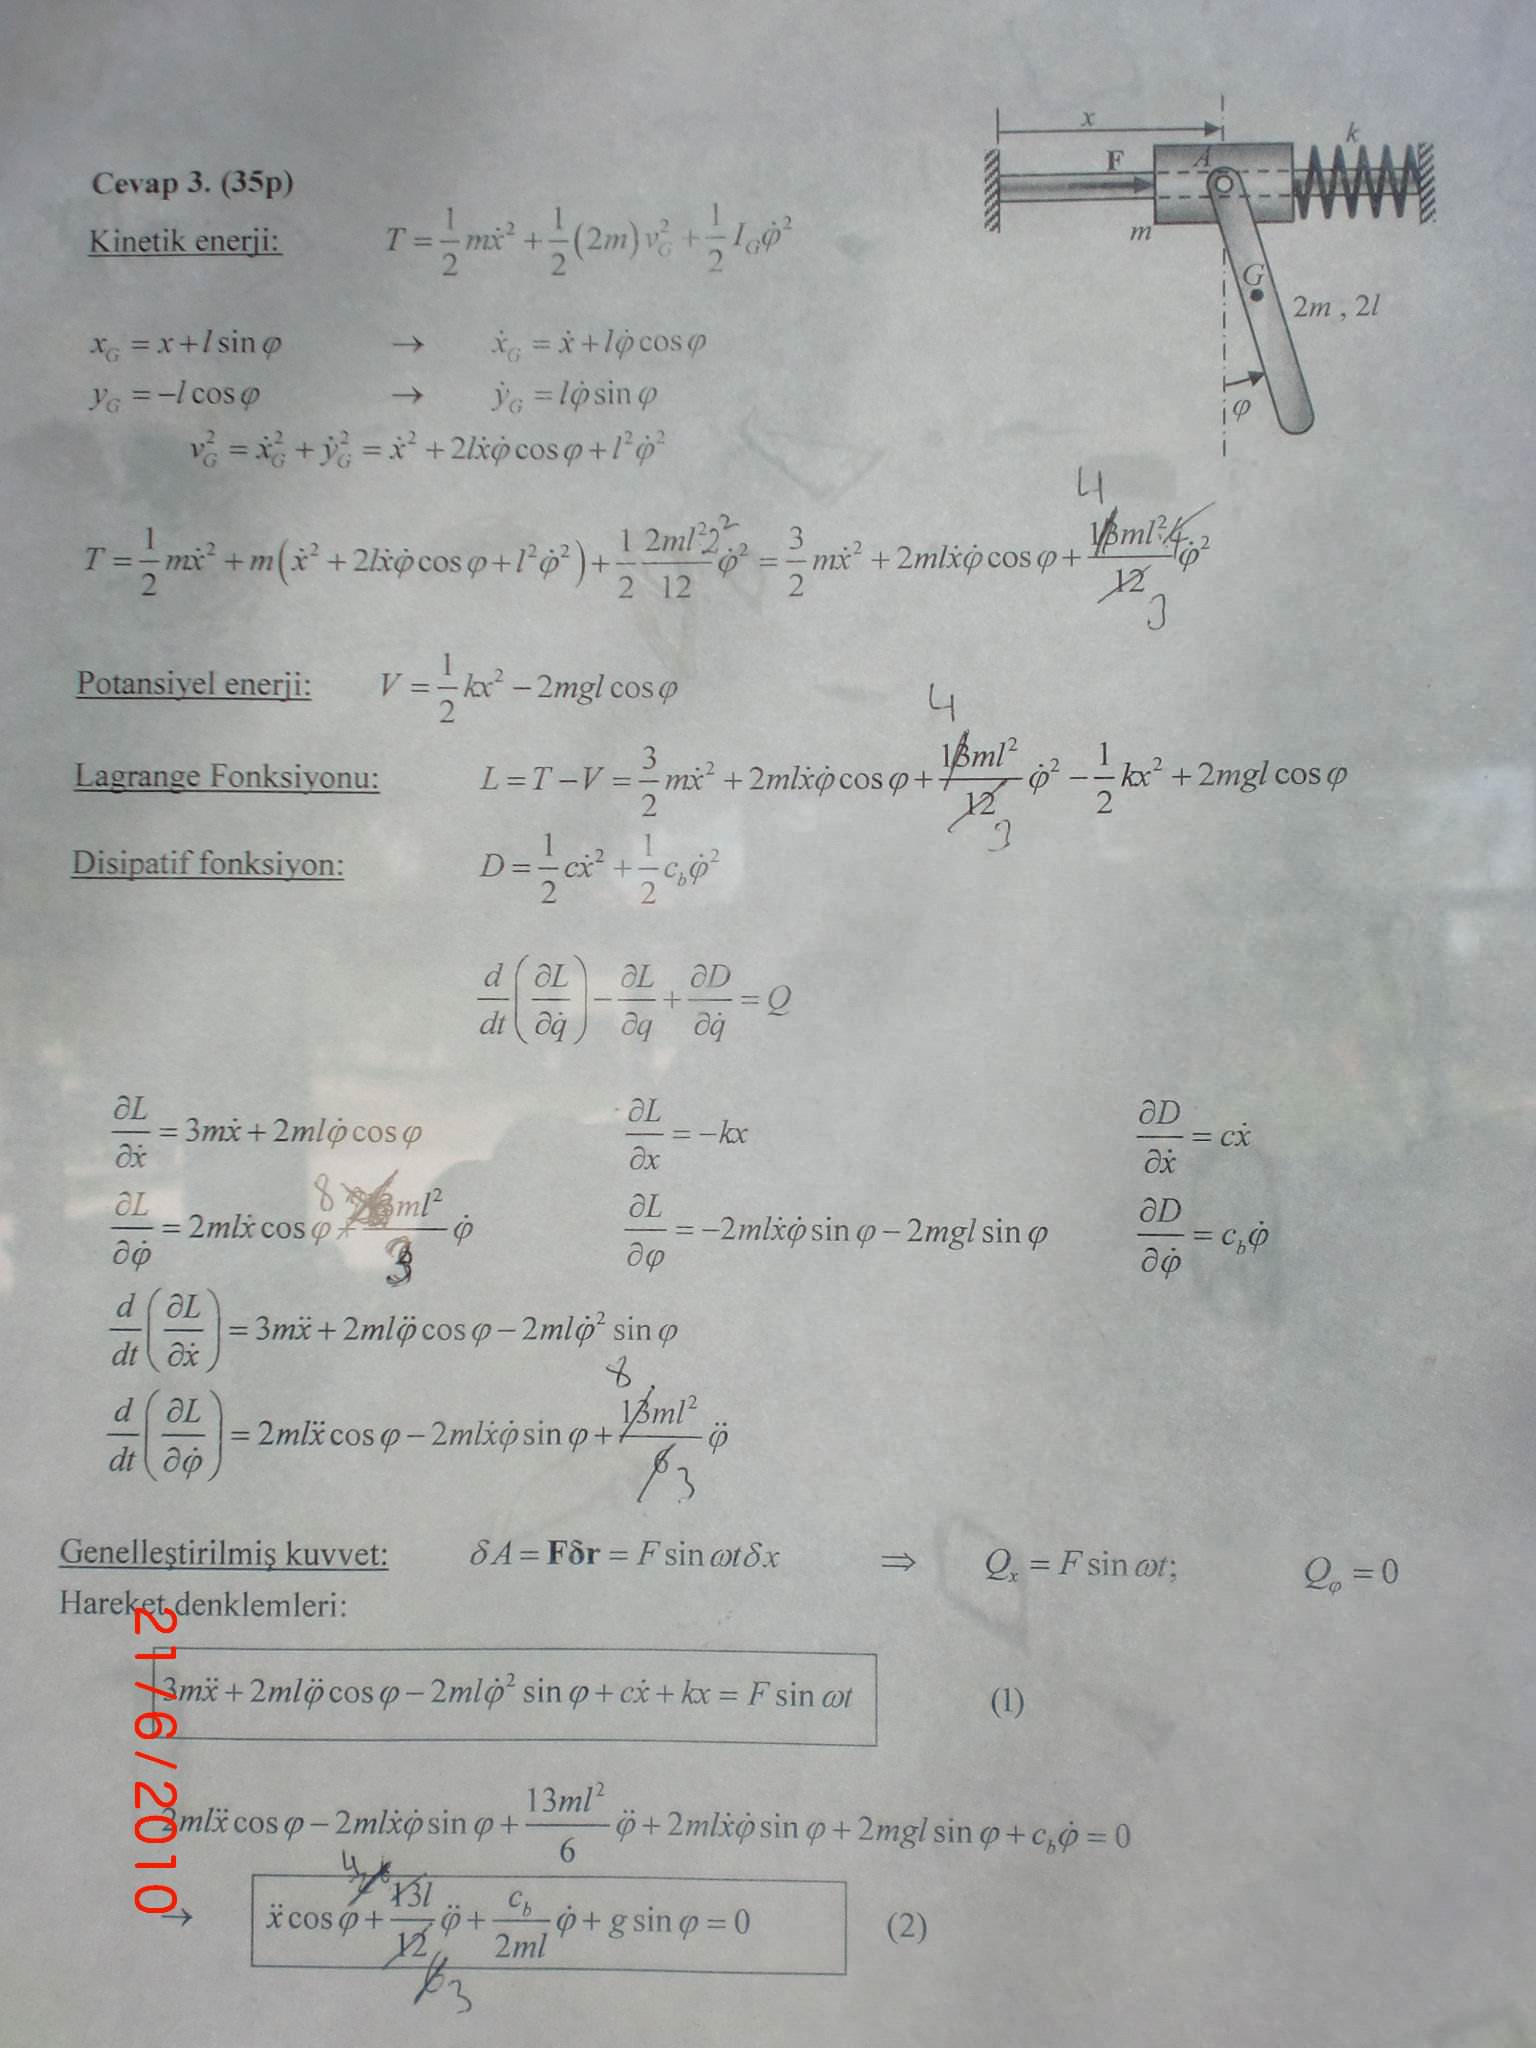 x
k
F
A
m
G
2m , 2l
φ
Cevap 3. (35p)
Kinetik enerji: T = 1/2 mẋ² + 1/2 (2m) v_G² + 1/2 I_G φ̇²
x_G = x + l sin φ → ẋ_G = ẋ + lφ̇ cos φ
y_G = −l cos φ → ẏ_G = lφ̇ sin φ
v_G² = ẋ_G² + ẏ_G² = ẋ² + 2lẋφ̇ cos φ + l²φ̇²
4
T = 1/2 mẋ² + m(ẋ² + 2lẋφ̇ cos φ + l²φ̇²) + 1/2 2ml²2²/12 φ̇² = 3/2 mẋ² + 2mlẋφ̇ cos φ + 13ml²·4/12 φ̇²
3
Potansiyel enerji: V = 1/2 kx² − 2mgl cos φ
4
Lagrange Fonksiyonu: L = T − V = 3/2 mẋ² + 2mlẋφ̇ cos φ + 13ml²/12 φ̇² − 1/2 kx² + 2mgl cos φ
3
Disipatif fonksiyon: D = 1/2 cẋ² + 1/2 c_b φ̇²
d/dt (∂L/∂q̇) − ∂L/∂q + ∂D/∂q̇ = Q
∂L/∂ẋ = 3mẋ + 2mlφ̇ cos φ ∂L/∂x = −kx ∂D/∂ẋ = cẋ
8
∂L/∂φ̇ = 2mlẋ cos φ + ml²/3 φ̇ ∂L/∂φ = −2mlẋφ̇ sin φ − 2mgl sin φ ∂D/∂φ̇ = c_b φ̇
d/dt (∂L/∂ẋ) = 3mẍ + 2mlφ̈ cos φ − 2mlφ̇² sin φ
8
d/dt (∂L/∂φ̇) = 2mlẍ cos φ − 2mlẋφ̇ sin φ + 13ml²/6 φ̈
3
Genelleştirilmiş kuvvet: δA = Fδr = F sin ωtδx ⇒ Q_x = F sin ωt; Q_φ = 0
Hareket denklemleri:
3mẍ + 2mlφ̈ cos φ − 2mlφ̇² sin φ + cẋ + kx = F sin ωt (1)
2mlẍ cos φ − 2mlẋφ̇ sin φ + 13ml²/6 φ̈ + 2mlẋφ̇ sin φ + 2mgl sin φ + c_b φ̇ = 0
4
→ ẍ cos φ + 13l/12 φ̈ + c_b/2ml φ̇ + g sin φ = 0 (2)
6 3
21/6/2010